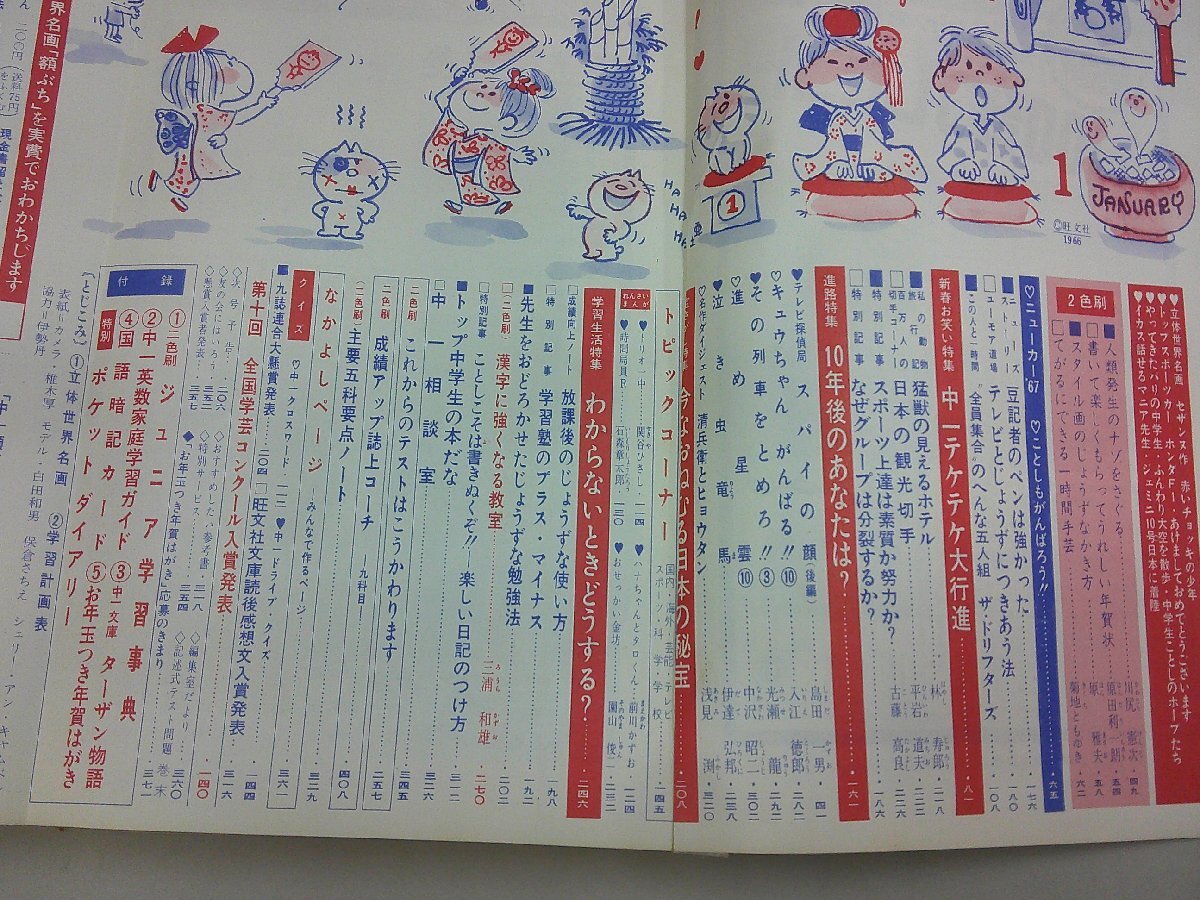 HA HA HA HA
1
1
JANUARY
©旺文社
1966
立体世界名画 セザンヌ作 赤いチョッキの少年
トップスポーツカー ホンダF1・あけましておめでとうございます
やってきたパリの中学生・ふんわり大空を散歩・中学生ことしのホープたち
イカス話せるマニア先生・ジェミニ10号日本に着陸
2色刷
■人類発生のナゾをさぐる 川尻憲次 四九
□書いて楽しくもらってうれしい年賀状 原田利一朗 五四
■スタイル画のじょうずなかき方 原 雅夫 五八
□てがるにできる一時間手芸 菊地ともゆき 六二
♡ニューカー'67 ♡ことしもがんばろう!! 六五
ニュースストーリーズ 豆記者のペンは強かった 一七六
□ユーモア道場 テレビとじょうずにつきあう法 一八〇
■この人と一時間 “全員集合”のへんな五人組 ザドリフターズ 一〇八
新春お笑い特集 中一テケテケ大行進 八一
私の動物旅行記 猛獣の見えるホテル 林 寿郎
□百万人の切手コーナー 日本の観光切手 平岩道夫 二二二
■特別記事 スポーツ上達は素質か努力か? 古藤高良 一八六
□特別記事 なぜグループは分裂するか?
進路特集 10年後のあなたは? 一六一
♥テレビ探偵局 スパイの顔(後編) 島田一男 四一
♡キュウちゃんがんばる!!⑩ 入江徳郎
♥その列車をとめろ!!③ 光瀬 龍 二九二
♡進め 青雲⑩ 中沢昭二
♥泣き虫竜馬 伊達弘邦 二三八
♡名作ダイジェスト 清兵衛とヒョウタン 浅見 渕 三二〇
今なおねむる日本の秘宝 二〇八
トピックコーナー 国内・海外 芸能・テレビ スポーツ 科学 学校 一四五
れんさいまんが
♥トリオ一中 関谷ひさし 一一四
♥ハナちゃんとタロくん 前川かずお 二二四
♥時間局員R 石森章太郎 一三〇
♥おせっかい金坊 園山俊二 二三一
学習生活特集 わからないときどうする? 二四六
□成績向上ノート 放課後のじょうずな使い方
■特別記事 学習塾のプラス・マイナス 一九八
■先生をおどろかせたじょうずな勉強法 九二
□二色刷 漢字に強くなる教室 三浦和雄 二七〇
□特別記事 ことしこそは書きぬくぞ!! 楽しい日記のつけ方 三一二
■トップ中学生の本だな
□中一相談室 三二六
二色刷 これからのテストはこうかわります 二四五
成績アップ誌上コーチ 九科目 二五七
二色刷 主要五科要点ノート 四〇八
なかよしページ —みんなで作るページ 三二九
クイズ ♡中一クロスワード 一一二 ♥中一ドライブクイズ 三六一
■九誌連合大懸賞発表 二〇四 □旺文社文庫読後感想文入賞発表 二四四
第十回 全国学芸コンクール入賞発表 三一六
◇次号予告 二〇六 ◇おすすめしたい参考書 三一八 ◇編集室だより 一四〇
◇友の会にはいろう ◇特別サービス 三五四 ◇記述式テスト問題 巻末
◇懸賞入賞者発表 三五七 ◆お年玉つき年賀はがき応募のきまり 三六〇
三七一
付録
①二色刷 ジュニア学習事典
②中一英数家庭学習ガイド ③中一文庫 ターザン物語
④国語暗記カード ⑤お年玉つき年賀はがき
特別 ポケットダイアリー
〔とじこみ〕 ①立体世界名画 ②学習計画表
表紙=カメラ・稚木厚 モデル・白田和男 保倉さちえ シェリー・アン・キャムベ
協力=伊勢丹
界名画「額ぶち」を実費でおわかちします
二〇〇円(送料75円